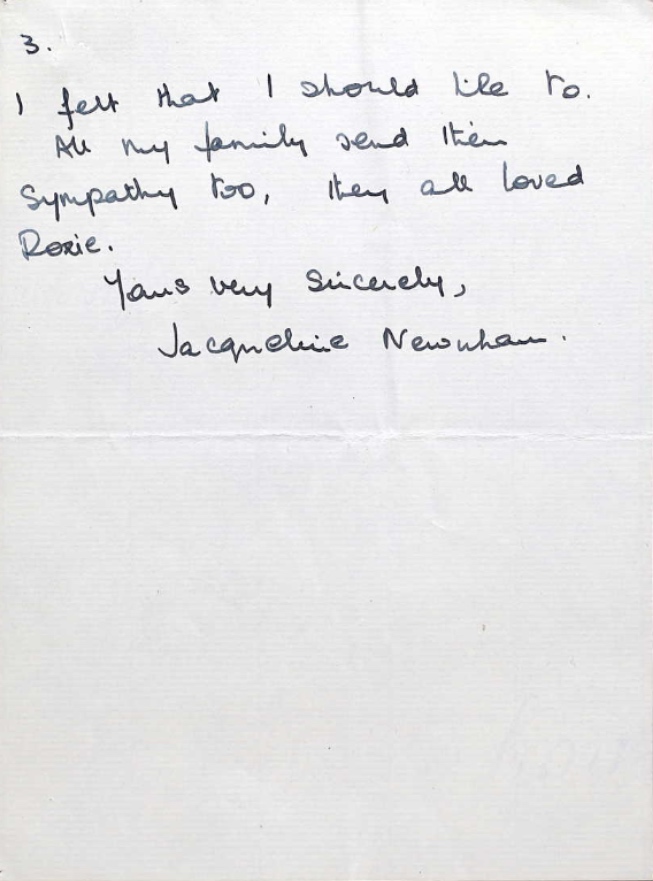 3.
I felt that I should like to.
All my family send their
Sympathy too, they all loved
Rosie.
Yours very Sincerely,
Jacqueline Newnham.